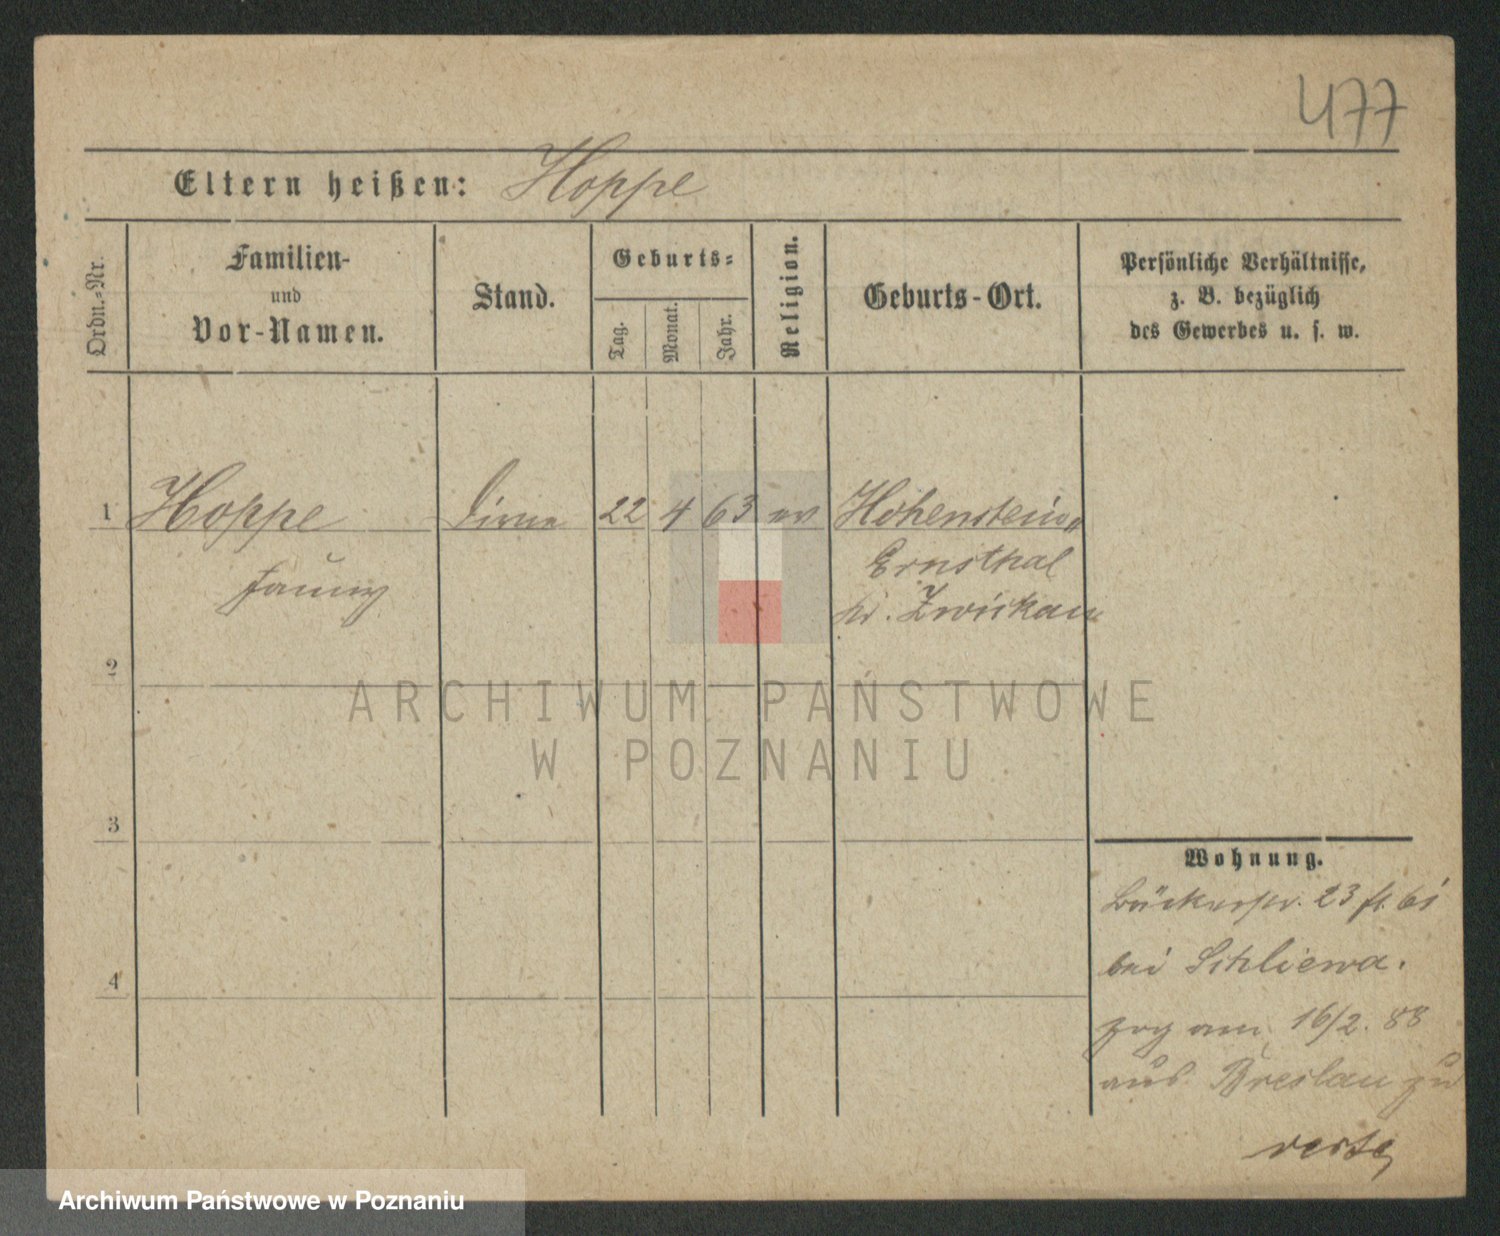 477
Eltern heißen: Hoppe
Ordn.-Nr.
Familien-
und
Vor-Namen.
Stand.
Geburts-
Tag.
Monat.
Jahr.
Religion.
Geburts-Ort.
Persönliche Verhältnisse,
z. B. bezüglich
des Gewerbes u. s. w.
1 Hoppe Dirne 22 4 63 ev Hohenstein-
Fanny Ernsthal
Zwickau
2
ARCHIWUM PAŃSTWOWE
W POZNANIU
3
Wohnung.
Bäckerstr. 23
bei Schliewa.
4
zog am 16/2. 88
aus Breslau zu
verte
Archiwum Państwowe w Poznaniu